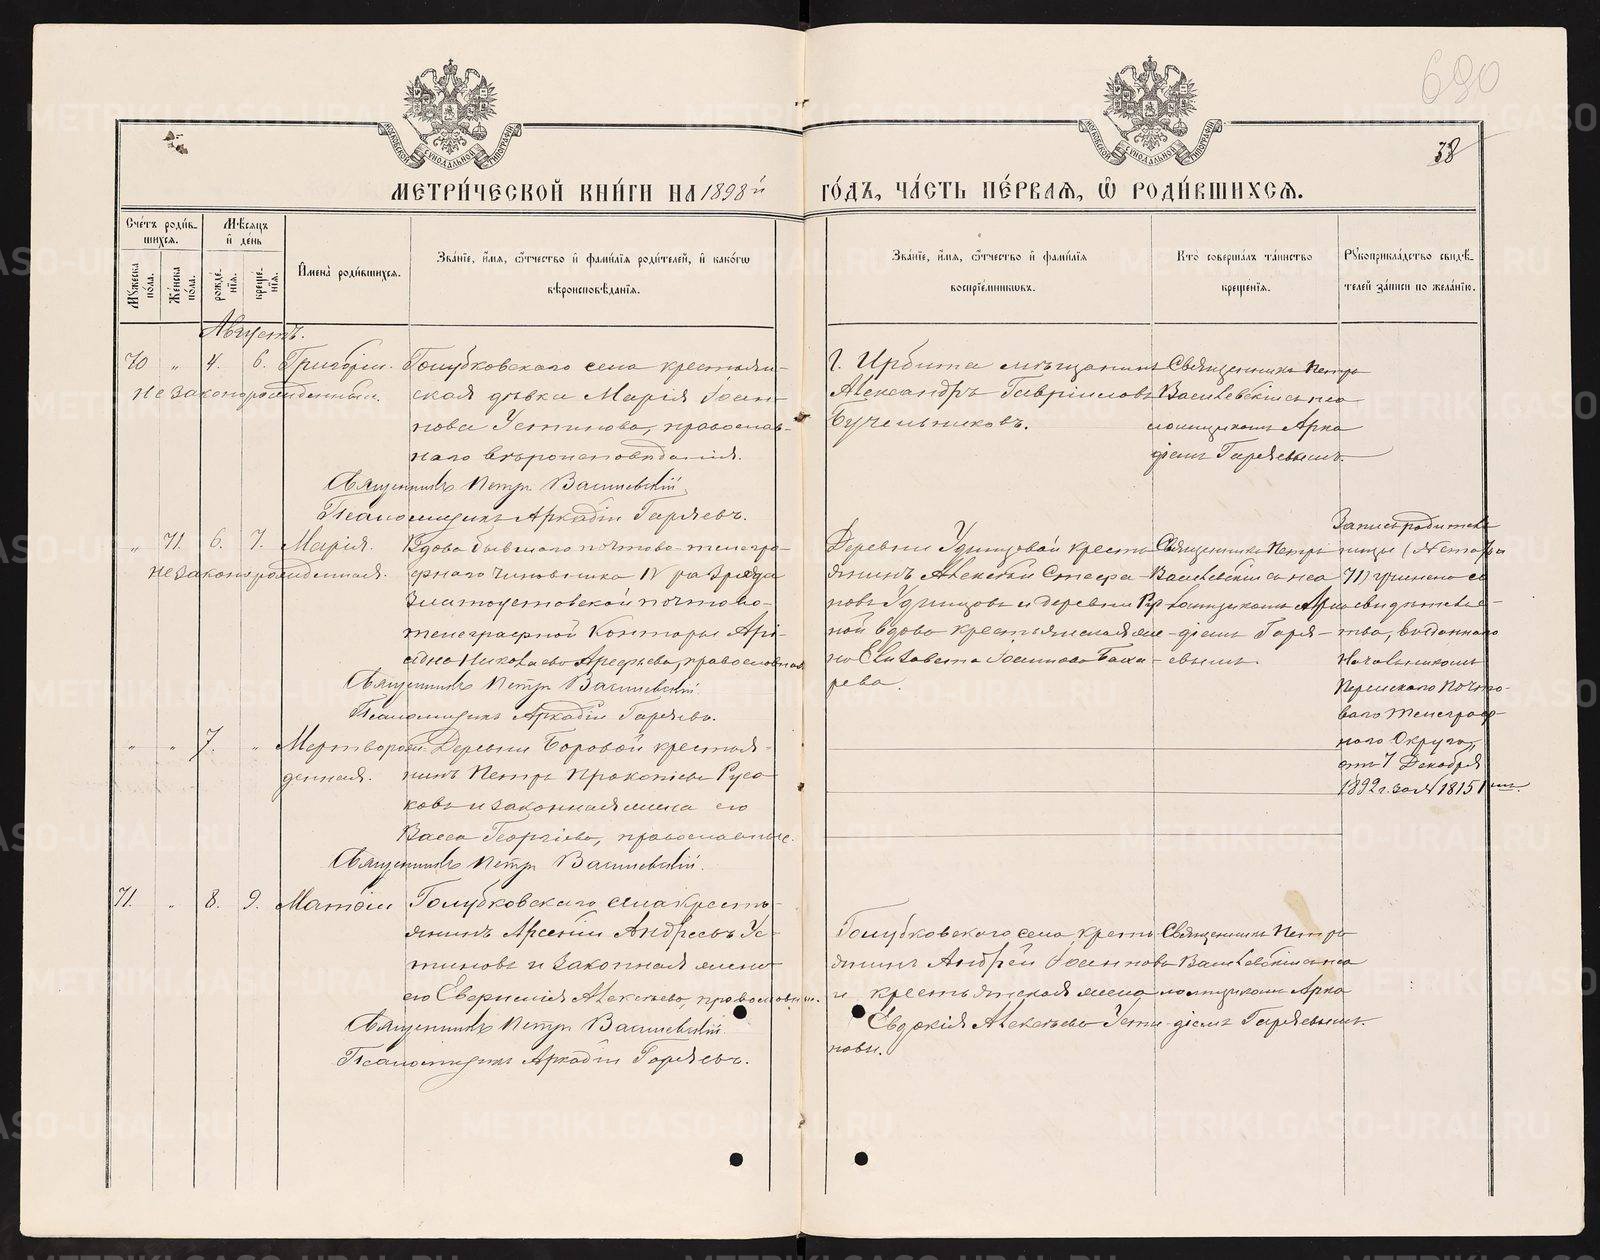 690
38
МОСКОВСКОЙ СѴНОДАЛЬНОЙ ТИПОГРАФІИ
МОСКОВСКОЙ СѴНОДАЛЬНОЙ ТИПОГРАФІИ
МЕТРИ́ЧЕСКОЙ КНИ́ГИ НА 1898й ГО́ДЪ, ЧА́СТЬ ПЕ́РВАЯ, Ѡ҆ РОДИ́ВШИХСЯ.
Сче́тъ роди́в-
шихся.
Му́жеска по́ла.
Же́нска по́ла.
Мѣ́сяцъ
и҆ де́нь
рожде́-
нїя.
креще́-
нїя.
И҆мена̀ роди́вшихся.
Зва́нїе, и҆́мя, ѻ҆́тчество и҆ фами́лїя роди́телей, и҆ како́гѡ
вѣроисповѣ́данїя.
Зва́нїе, и҆́мя, ѻ҆́тчество и҆ фами́лїя
воспрїе́мниковъ.
Кто̀ соверша́лъ та́инство
креще́нїя.
Рꙋкоприкла́дство свидѣ́-
телей за́писи по жела́нїю.
Августъ.
70 " 4. 6. Григорій.
Незаконорожденный.
Голубковскаго села крестьян-
ская дѣвка Марія Іоан-
нова Устинова, православ-
наго вѣроисповѣданія.
Священникъ Петръ Василевскій.
Псаломщикъ Аркадій Гаряевъ.
Г. Ирбита мѣщанинъ
Александръ Гавріиловъ
Бучельниковъ.
Священникъ Петръ
Василевскій съ пса
ломщикомъ Арка
діемъ Гаряевымъ.
" 71. 6. 7. Марія.
Незаконорожденная.
Вдова бывшаго почтово-телегра-
фнаго чиновника IV разряда
Златоустовской почтово-
телеграфной Конторы Арі-
адна Николаева Арефьева, православная
Священникъ Петръ Василевскій.
Псаломщикъ Аркадій Гаряевъ.
Деревни Удинцовой кресть
янинъ Алексѣй Стефа
новъ Удинцовъ и деревни
ной вдова крестьянская же-
на Елизавета Іоаннова Баха-
рева.
Священникъ Петръ
Василевскій съ пса
ломщикомъ Арка
діемъ Гаря-
евымъ.
Запись родитель
ницы (
71) учинена со
свидѣтель-
ства, выданнаго
Начальникомъ
Пермскаго Почто-
ваго Телеграф-
наго Округа,
отъ 7 Декабря
1892 г. за № 18151
" " 7. " Мертворож-
денная.
Деревни Боровой крестья-
нинъ Петръ Прокопіевъ Руса
ковъ и законная жена его
Васса Георгіева, православные.
Священникъ Петръ Василевскій.
71. " 8. 9. Матѳій
Голубковскаго села кресть-
янинъ Арсеній Андреевъ Ус-
тиновъ и законная жена
его Евгенія Алексѣева, православные.
Священникъ Петръ Василевскій.
Псаломщикъ Аркадій Гаряевъ.
Голубковскаго села кресть
янинъ Андрей Іоанновъ
и крестьянская жена
Евдокія Алексѣева Усти-
новы.
Священникъ Петръ
Василевскій съ пса
ломщикомъ Арка
діемъ Гаряевымъ.